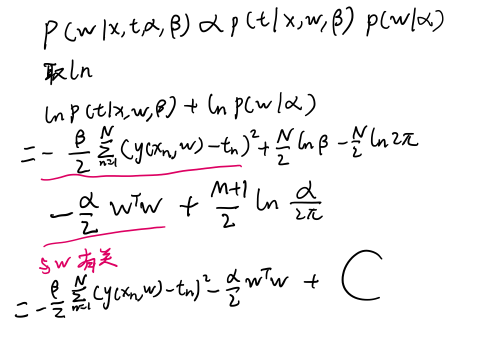 p(w|x,t,α,β) ∝ p(t|x,w,β) p(w|α)
取ln
ln p(t|x,w,β) + ln p(w|α)
= - β/2 ∑_{n=1}^{N} (y(x_n,w) - t_n)² + N/2 ln β - N/2 ln 2π
- α/2 wᵀw + M+1/2 ln α/2π
与w有关
= - β/2 ∑_{n=1}^{N} (y(x_n,w) - t_n)² - α/2 wᵀw + C